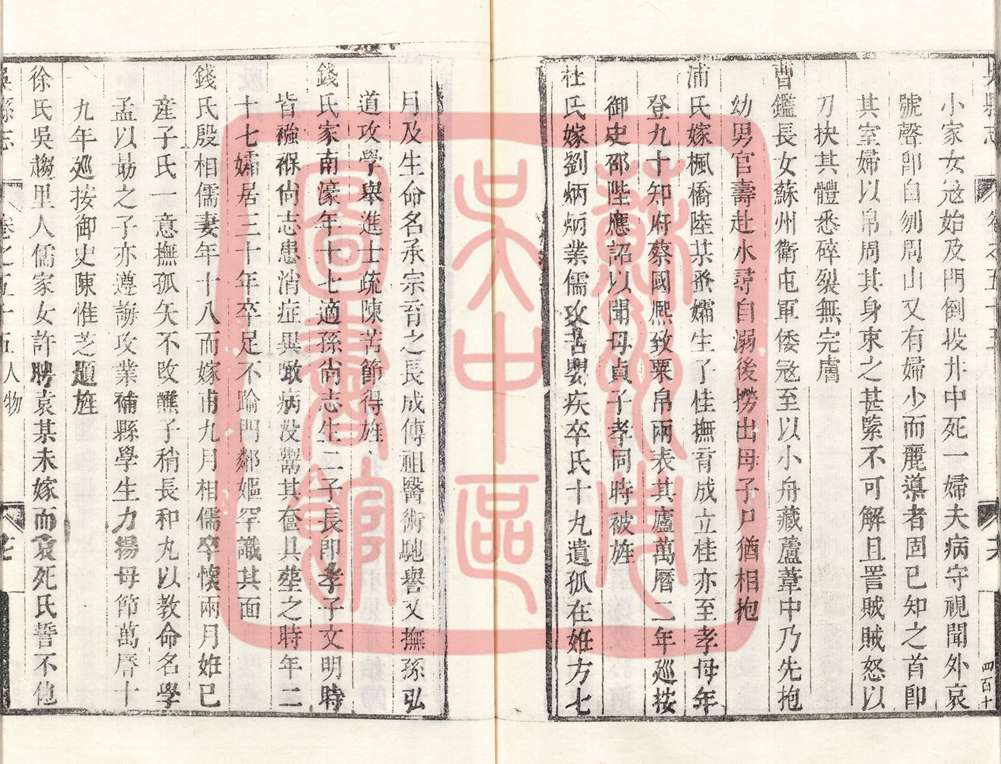 吳縣志
卷之五十五
六
四百十
小家女寇始及門倒投井中死一婦夫病守視聞外哀
號聲卽自刎周山又有婦少而麗導者固已知之首卽
其室婦以帛周其身束之甚緊不可解且詈賊賊怒以
刀抉其體悉碎裂無完膚
曹鑑長女蘇州衛屯軍倭寇至以小舟藏蘆葦中乃先抱
幼男官壽赴水尋自溺後撈出母子尸猶相抱
浦氏嫁楓橋陸某蚤孀生子佳撫育成立桂亦至孝母年
登九十知府蔡國熙致粟帛兩表其廬萬曆二年廵按
御史邵陛應詔以聞母貞子孝同時被旌
杜氏嫁劉炳炳業儒攻苦嬰疾卒氏十九遺孤在姙方七
月及生命名承宗育之長成傳祖醫術馳譽又撫孫弘
道攻學舉進士疏陳苦節得旌
錢氏家南濠年十七適孫尚志生二子長卽孝子文明時
皆襁褓尚志患消症異嗽病没鬻其奩具塟之時年二
十七孀居三十年卒足不踰門鄰嫗罕識其面
錢氏殷相儒妻年十八而嫁甫九月相儒卒懷兩月姙已
産子氏一意撫孤矢不敗醮子稍長和丸以教命名學
孟以勗之子亦遵誨攻業補縣學生力揚母節萬曆十
九年廵按御史陳惟芝題旌
徐氏吳趨里人儒家女許聘袁某未嫁而袁死氏誓不他
吳縣志
卷之五十五
人物
七
蘇州市
吳中區
圖書館